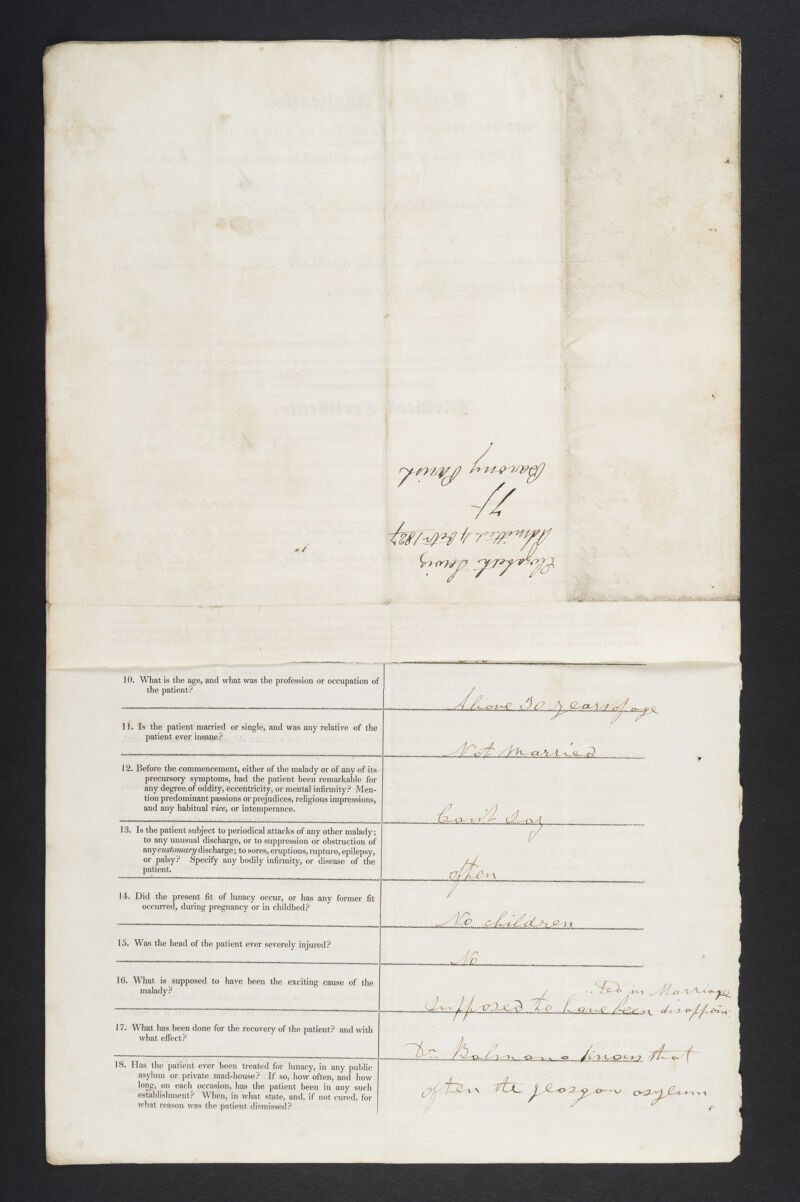 Elizabeth
Admitted 4 Octr 1827
7/
Barony Parish
10. What is the age, and what was the profession or occupation of
the patient?
Above 30 years of age
11. Is the patient married or single, and was any relative of the
patient ever insane?
Not Married
12. Before the commencement, either of the malady or of any of its
precursory symptoms, had the patient been remarkable for
any degree of oddity, eccentricity, or mental infirmity? Men-
tion predominant passions or prejudices, religious impressions,
and any habitual vice, or intemperance.
Can't Say
13. Is the patient subject to periodical attacks of any other malady;
to any unusual discharge, or to suppression or obstruction of
any customary discharge; to sores, eruptions, rupture, epilepsy,
or palsy? Specify any bodily infirmity, or disease of the
patient.
often
14. Did the present fit of lunacy occur, or has any former fit
occurred, during pregnancy or in childbed?
No children
15. Was the head of the patient ever severely injured?
No
16. What is supposed to have been the exciting cause of the
malady?
Supposed to have been disappoin
ted in Marriage
17. What has been done for the recovery of the patient? and with
what effect?
Dr Balmano knows that
18. Has the patient ever been treated for lunacy, in any public
asylum or private mad-house? If so, how often, and how
long, on each occasion, has the patient been in any such
establishment? When, in what state, and, if not cured, for
what reason was the patient dismissed?
often the glasgow asylum